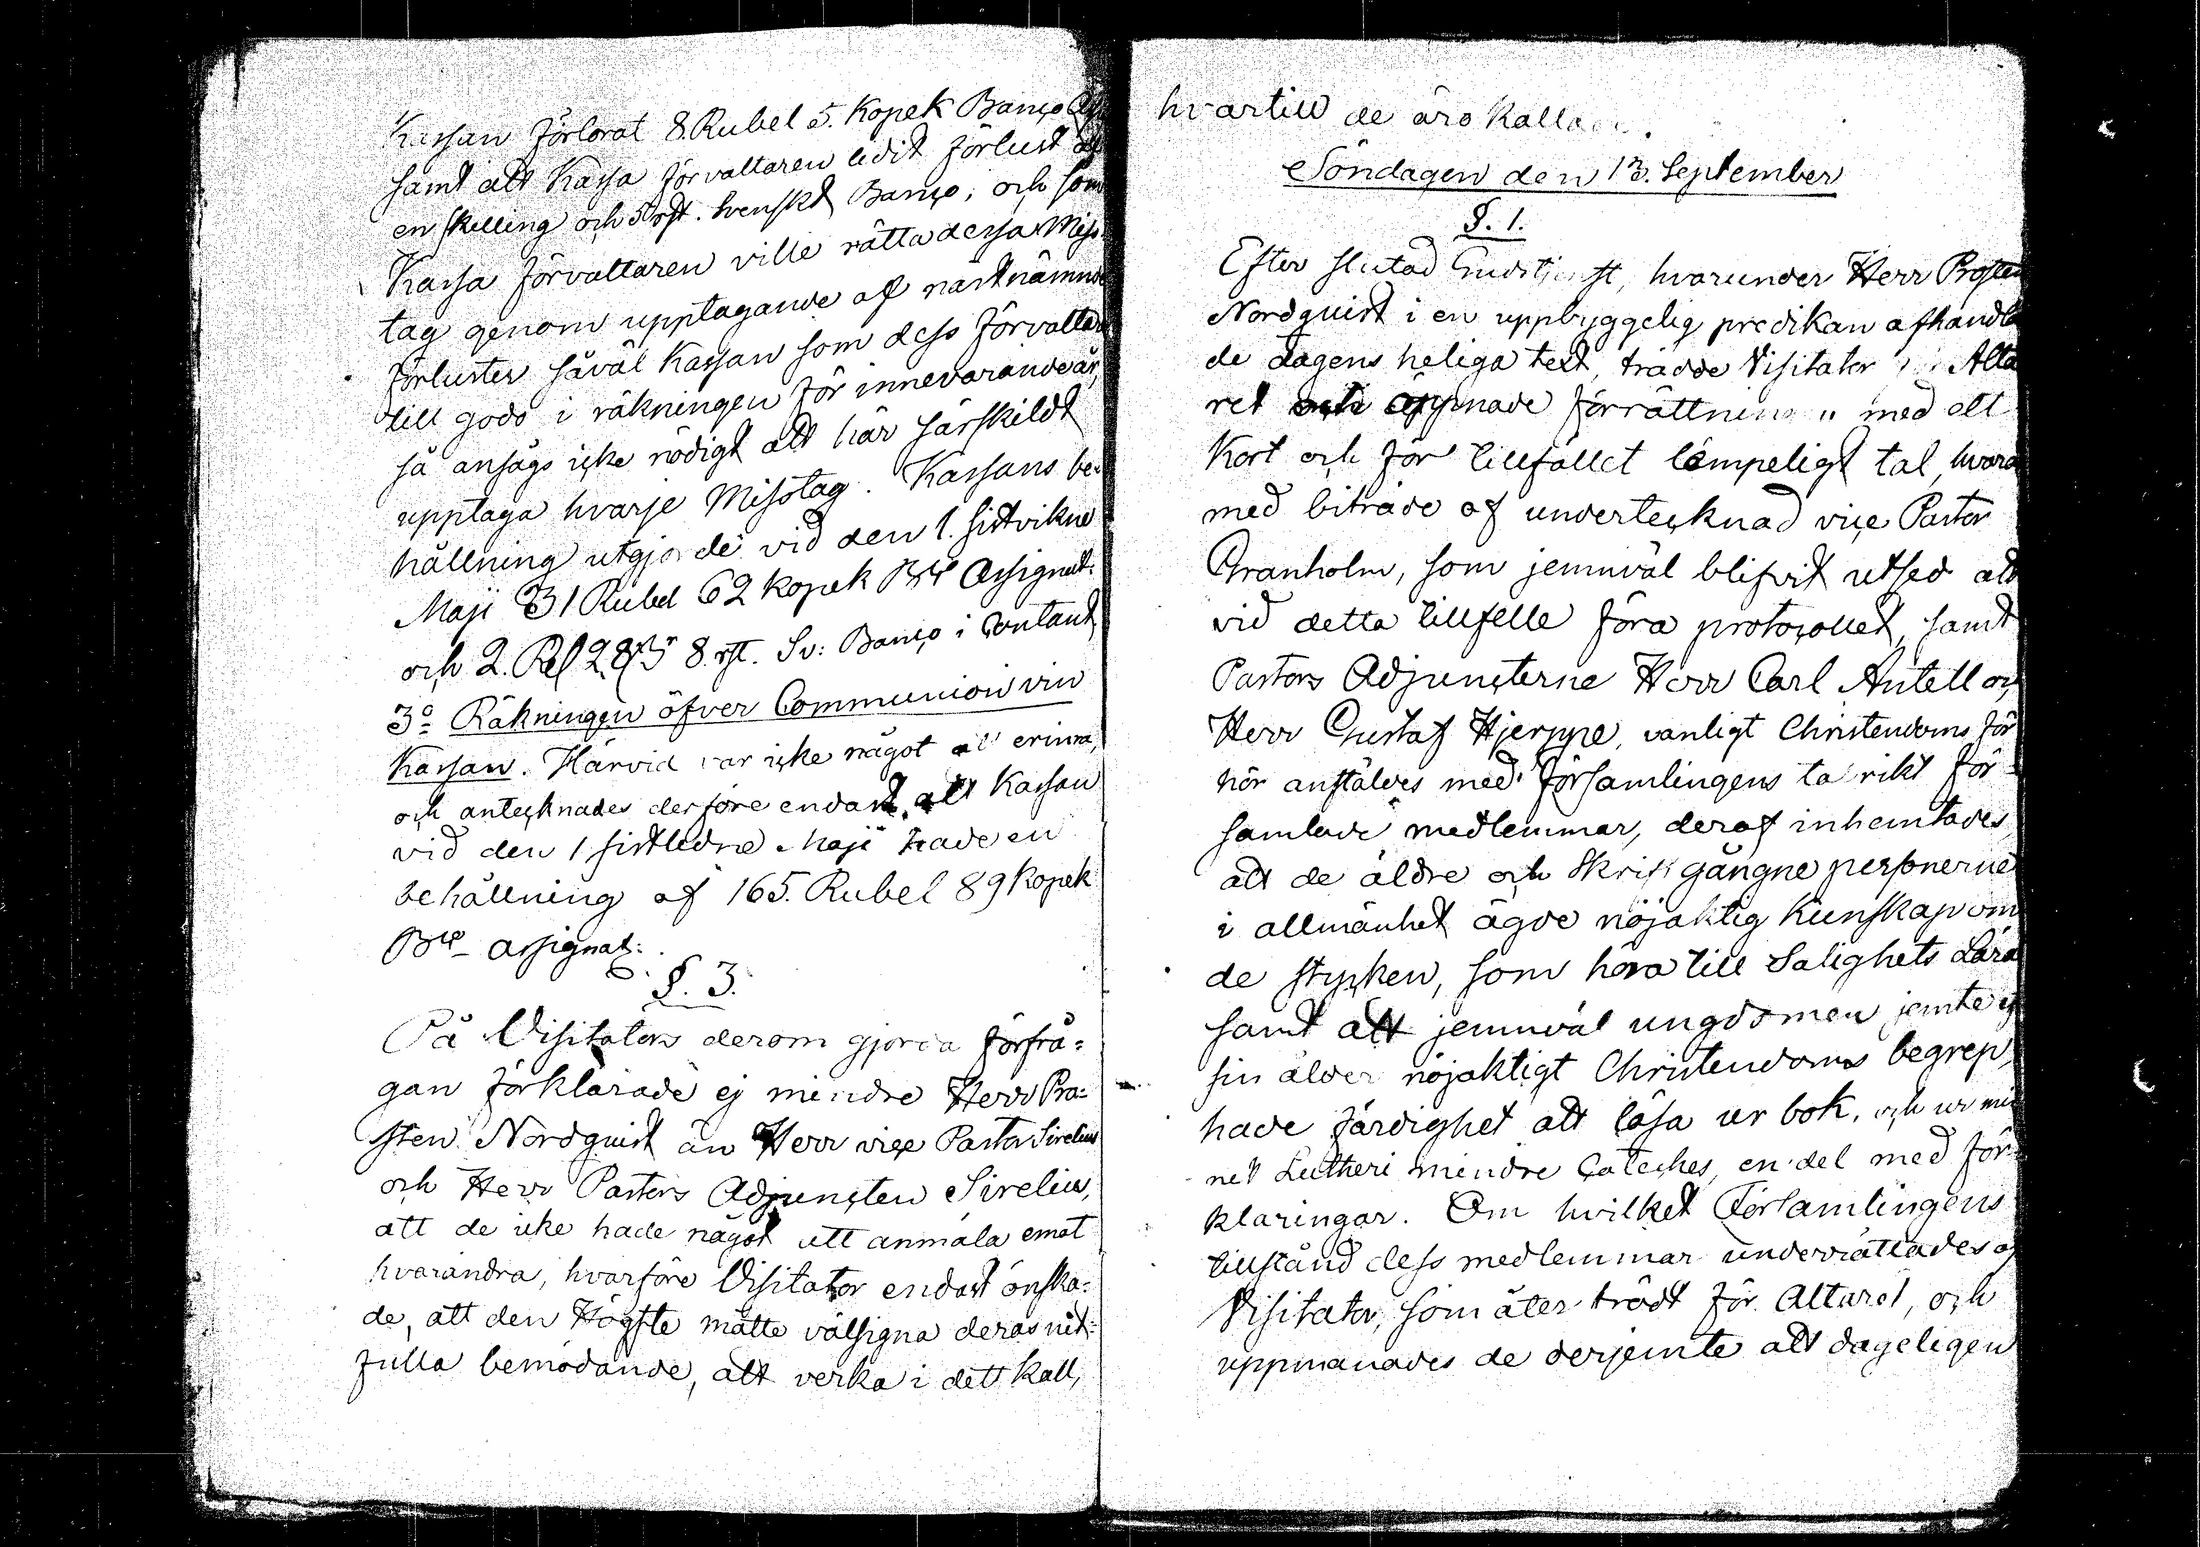 Kassan förlorat 8 Rubel 5. Kopek Banco
samt att Kassa förvaltaren lidit förlust af
en skilling och 5 rst. Svenskt Banco; och som
Kassa förvaltaren ville rätta dessa Miss-
tag genom upptagande af nästnämnde
förluster såväl Kassan som dess förvaltare
till godo i räkningen för innevarande år,
så ansågs icke nödigt att här särskildt
upptaga hvarje Misstag. Kassans be-
hållning utgjorde vid den 1. sistvikne
Maji 31 Rubel 62 kopek Bco Assignat:
och 2. 8 rst. Sv: Banco i Contant
3o Räkningen öfver Communion vin
Kassan. Härvid var icke något att erinra,
och antecknades derföre endast, att Kassan
vid den 1 sistledne Maji hade en
behållning af 165. Rubel 89 Kopek
Bco assignat:
§. 3.
På Visitators derom gjorda förfrå=
gan förklarade ej mindre Herr Pro=
sten Nordquist än Herr vice Pastor Sirelius
och Herr Pastors Adjuncten Sirelius,
att de icke hade något att anmäla emot
hvarandra, hvarföre Visitator endast önska=
de, att den Högste måtte välsigna deras nit=
fulla bemödande, att verka i dett kall,
hvartill de äro kallade.
Söndagen den 13. September
§. 1.
Efter slutad Gudstjenst, hvarunder Herr Prosten
Nordquist i en uppbyggelig predikan afhandla
de dagens heliga text, trädde Visitator Alta
ret och öppnade förrättningen med ett
Kort och för tillfället lämpeligt tal, hvara
med biträde af undertecknad vice Pastor
Granholm, som jemnväl blifvit utsed att
vid detta tillfelle föra protocollet, samt
Pastors Adjuncterne Herr Carl Antell och
Herr Gustaf Hjerppe, vanligt Christendoms för
hör anställdes med församlingens talrikt för=
samlade medlemmar, deraf inhemtades
att de äldre och Skriftgångne personerne
i allmänhet ägde nöjaktig Kunskap om
de stycken, som höra till Salighets Lära
samt att jemnväl ungdomen jemte ej
sin ålder nöjaktigt Christendoms begrep,
hade färdighet att läsa ur bok, och ur min
net Lutheri mindre Cateches, en del med för=
klaringar. Om hvilket Församlingens
tillstånd dess medlemmar underrättades af
Visitator, som åter trädt för Altaret, och
uppmanades de derjemte att dageligen